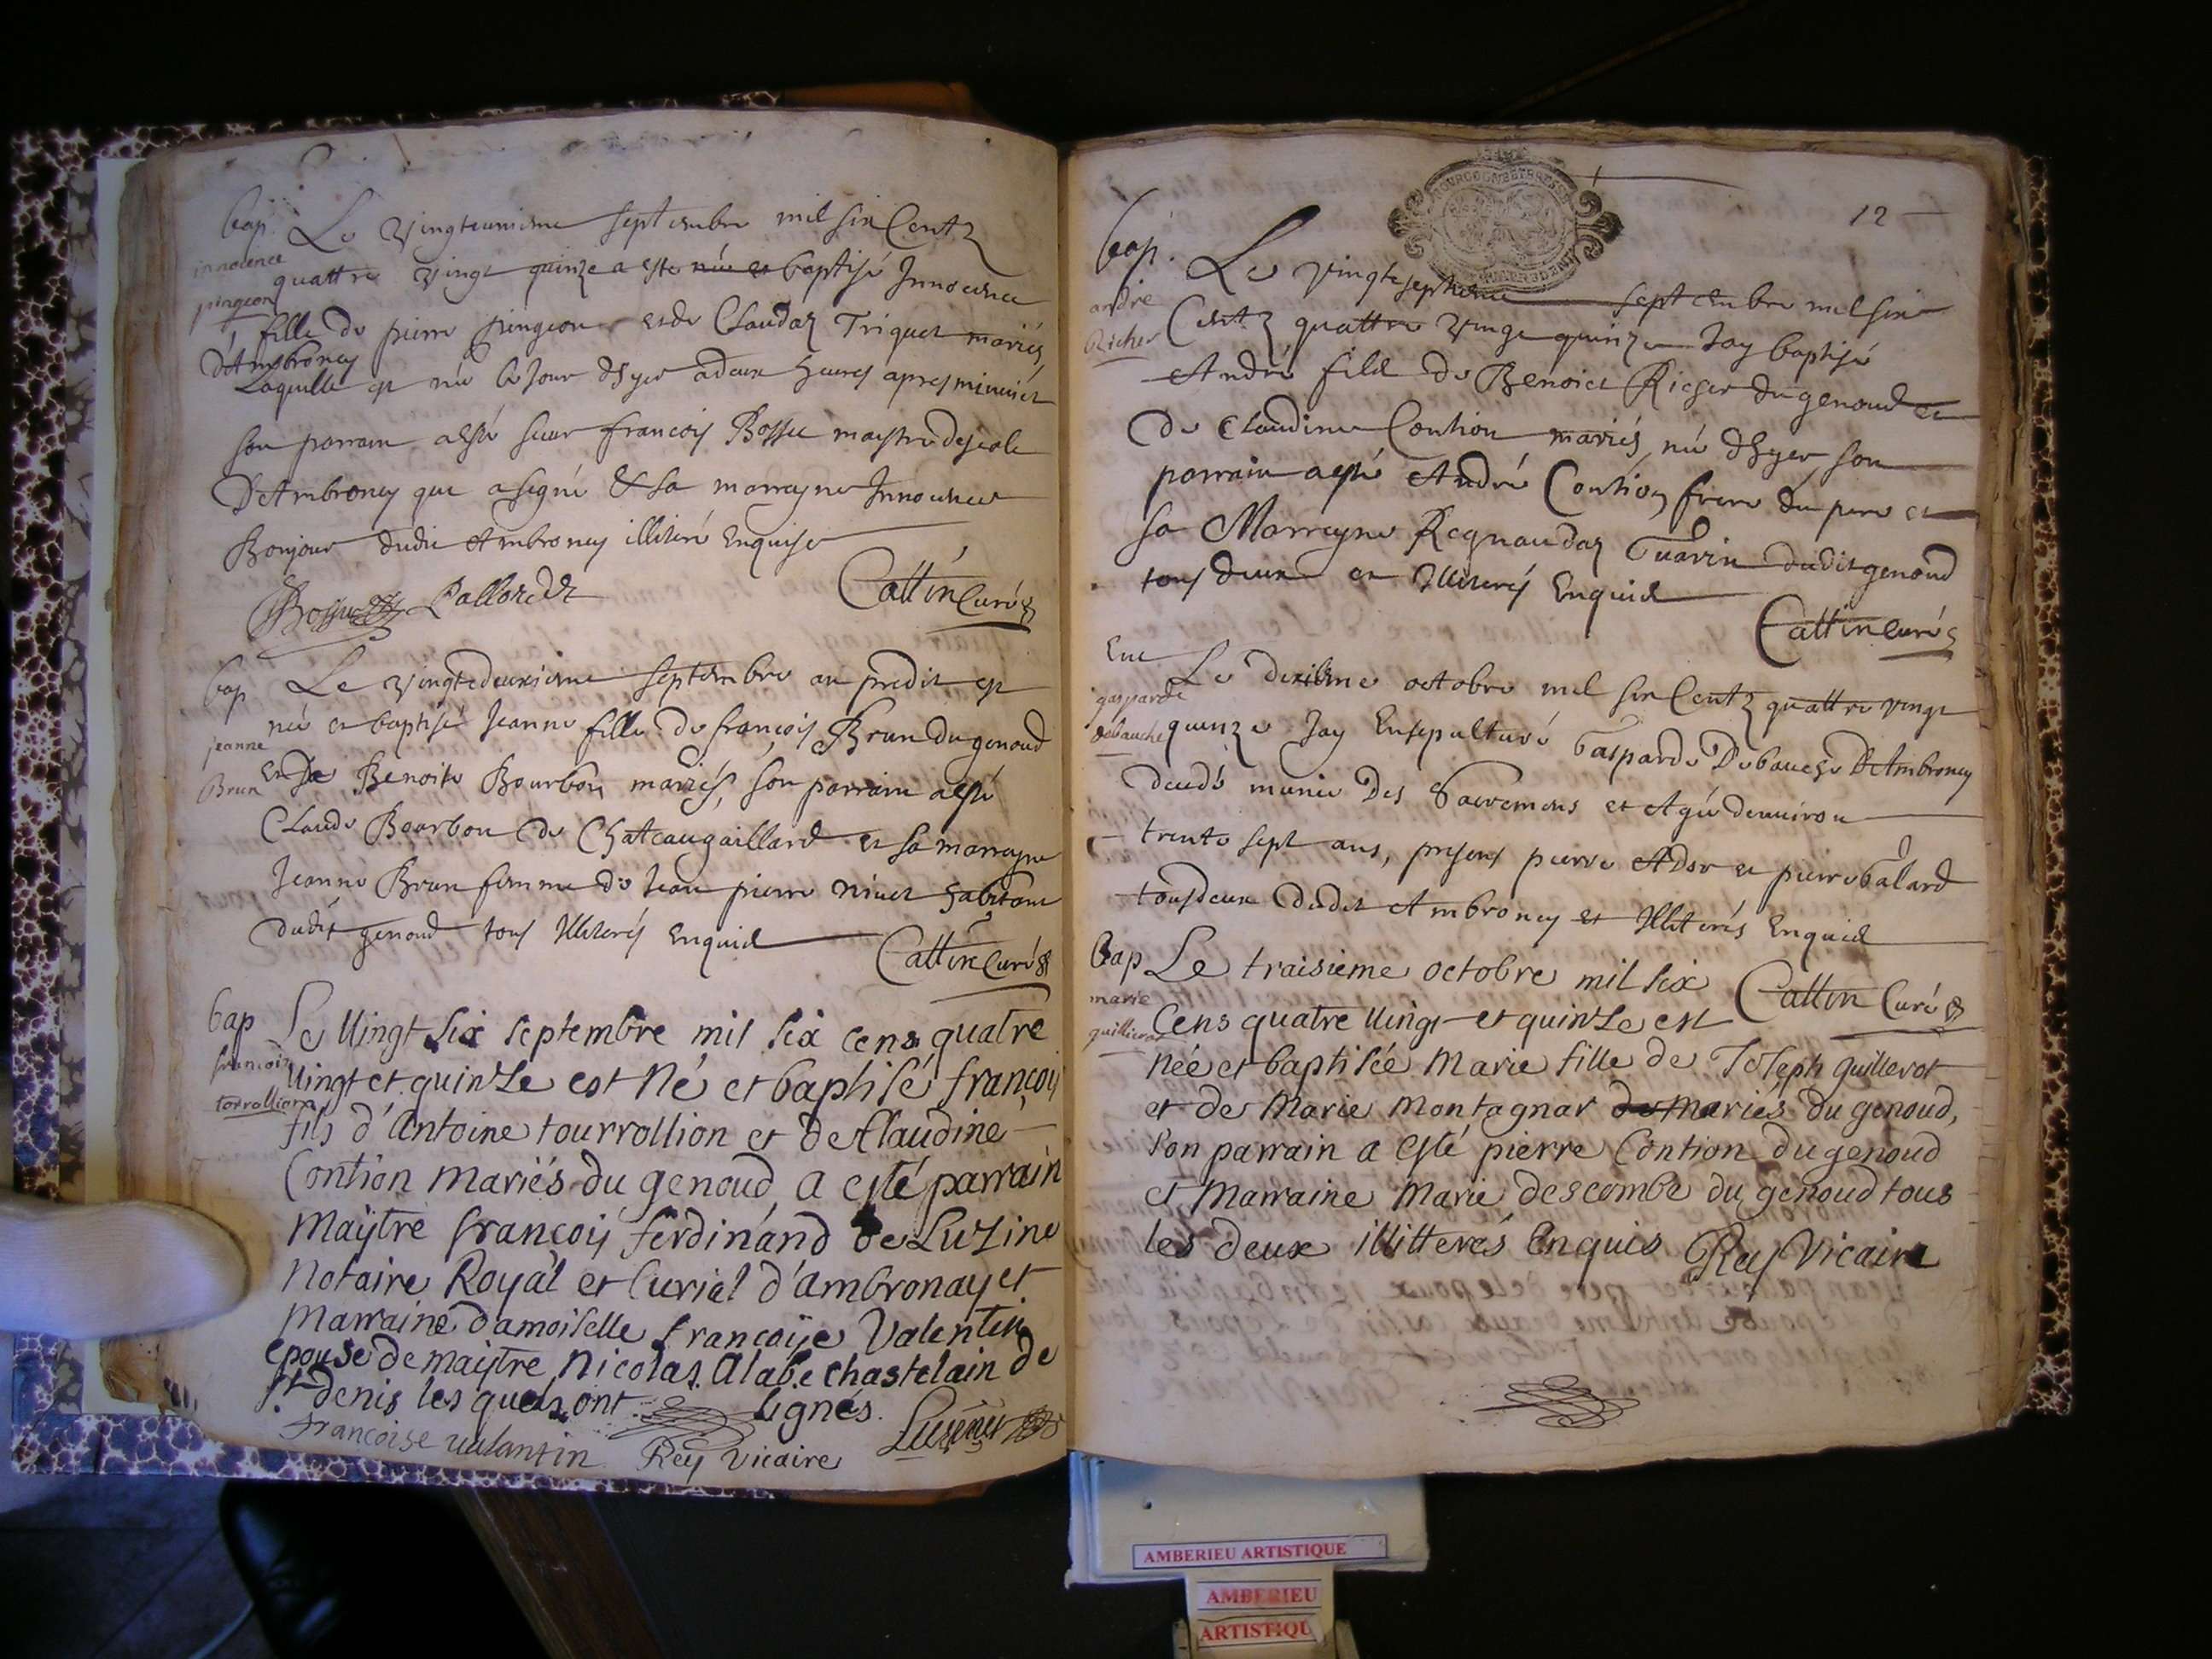 bap
innocence
pingeon
Le vingteunieme septembre mil six Centz
quattre vingt quinze a este née et baptisé Innocence
fille de pierre pingeon et de Claudaz Triquet mariés
d'Ambroney
Laquelle est née le Jour d'hyer a deux heures apres minuict
son parrain a esté sieur francois Bossu maystre descole
D'Ambroney qui a signé & sa marrayne Innocence
Bonjour dudit Ambroney illiteré Enquise
Bossu Cattin Curé
bap
jeanne
Brun
Le vingtedeuxieme septembre an predit est
née et baptisé Jeanne fille de françois Brun du genoud
et de Benoite Bourbon mariés, son parrain a esté
Claude Bourbon de Chateaugaillard et sa marrayne
Jeanne Brun femme de Jean pierre habitant
dudit genoud tous Illiterés Enquis
Cattin Curé
bap
francois
torrollion
Le Vingt six septembre mil six cens quatre
Vingt et quinze est Né et baptisé françois
fils d'Antoine tourrollion et de Claudine
Contion mariés du genoud, a esté parrain
Maÿtre françois ferdinand de Luzine
Notaire Royal et Curial d'ambronay et
Marraine Damoiselle françoise Valentin
epouse de maÿtre Nicolas Alabe chastelain de
St denis les quels ont signés.
françoise valantin Rey Vicaire
BOURGOGNE ET BRESSE
12
bap.
andre
Richer
Le vingtseptieme septembre mil six
Centz quattre vingt quinze Jay baptisé
André fils de Benoict Richer du genoud et
de Claudine Contion mariés, né d'hyer, son
parrain a esté André Contion frere du pere et
sa Marrayne Regnaudaz Guarin dudit genoud
tous deux et Illiterés Enquis
Cattin curé
Ent
gasparde
debauche
Le deuxieme octobre mil six Centz quattre vingt
quinze Jay Ensepulturé Gasparde Debauche D'Ambroney
munie Des Sacremens et Agée denviron
trente sept ans, presens pierre Ador et pierre Galard
tousdeux dudit Ambroney et Illiterés Enquis
Cattin Curé
Bap
marie
guillierot
Le traisieme octobre mil six
Cens quatre Vingt et quinze est
Née et baptisée Marie fille de Joseph guillerot
et de Marie Montagnar de Mariés du genoud,
son parrain a esté pierre Contion du genoud
et Marraine Marie descombe du genoud tous
les deux illitterés Enquis Rey Vicaire
AMBERIEU ARTISTIQUE
AMBERIEU
ARTISTIQU